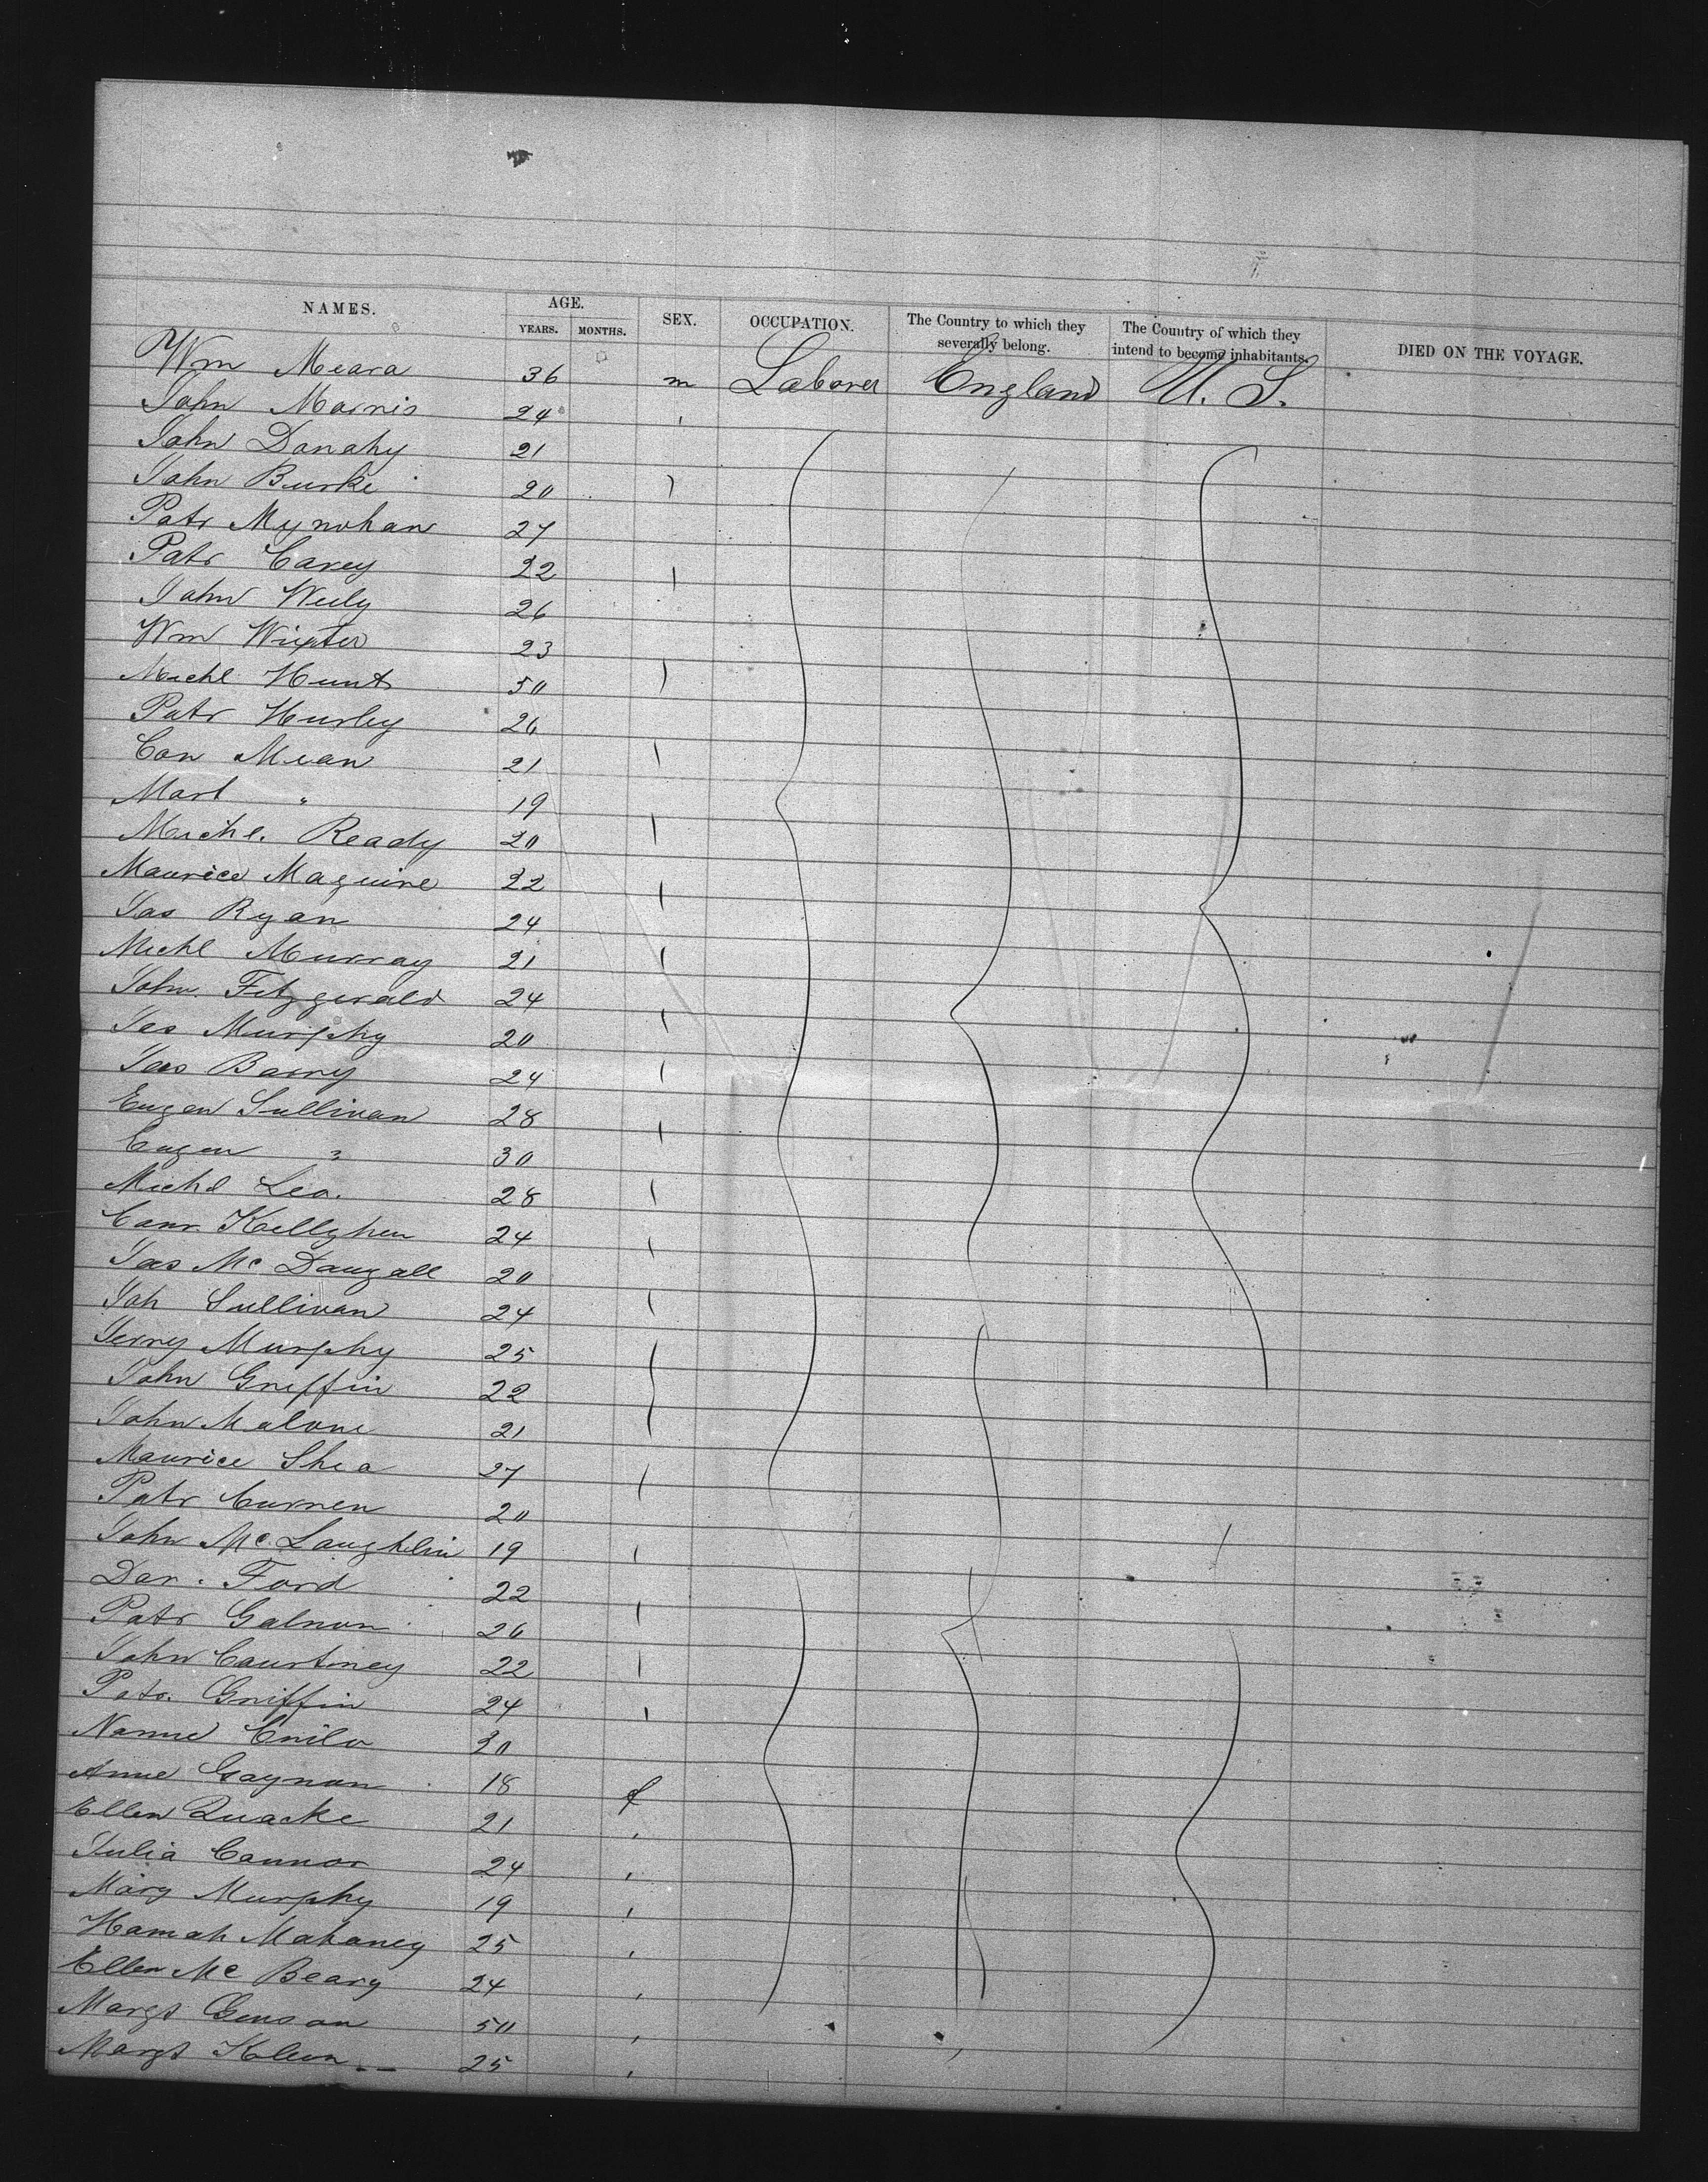 NAMES. AGE. SEX. OCCUPATION. The Country to which they severally belong. The Country of which they intend to become inhabitants. DIED ON THE VOYAGE.
YEARS. MONTHS.
Wm Meara 36 m Laborer England U. S.
John Morris 24
John Donahy 21
John Burke 20
Patr Mynohan 27
Patr Carey 22
John Weely 26
Wm 23
Michl Hunt 50
Patr Hurley 26
Con Mean 21
Mart " 19
Michl. Ready 20
Maurice Maguire 22
Jas Ryan 24
Michl Murray 21
John Fitzgerald 24
Jas Murphy 20
Jas Barry 24
Eugen Sullivan 28
Eugen " 30
Michl Lea. 28
Kellghen 24
Jas Mc Dougall 20
Joh Sullivan 24
Jerry Murphy 25
John Griffin 22
John Malone 21
Maurice Shea 27
Patr Curnen 20
John Mc Laughlin 19
Dan. Ford 22
Patr Galnon 26
John Courtney 22
Patr. Griffin 24
20
Anne Gaynon 18 f
Ellen Quacke 21
Julia Connor 24
Mary Murphy 19
Hannah Mahaney 25
Ellen Mc Beary 24
Margt 50
Margt 25